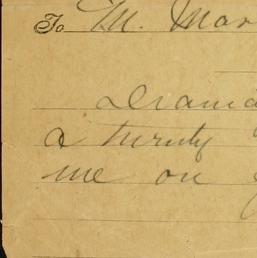 To M. Mar
a twenty
me on